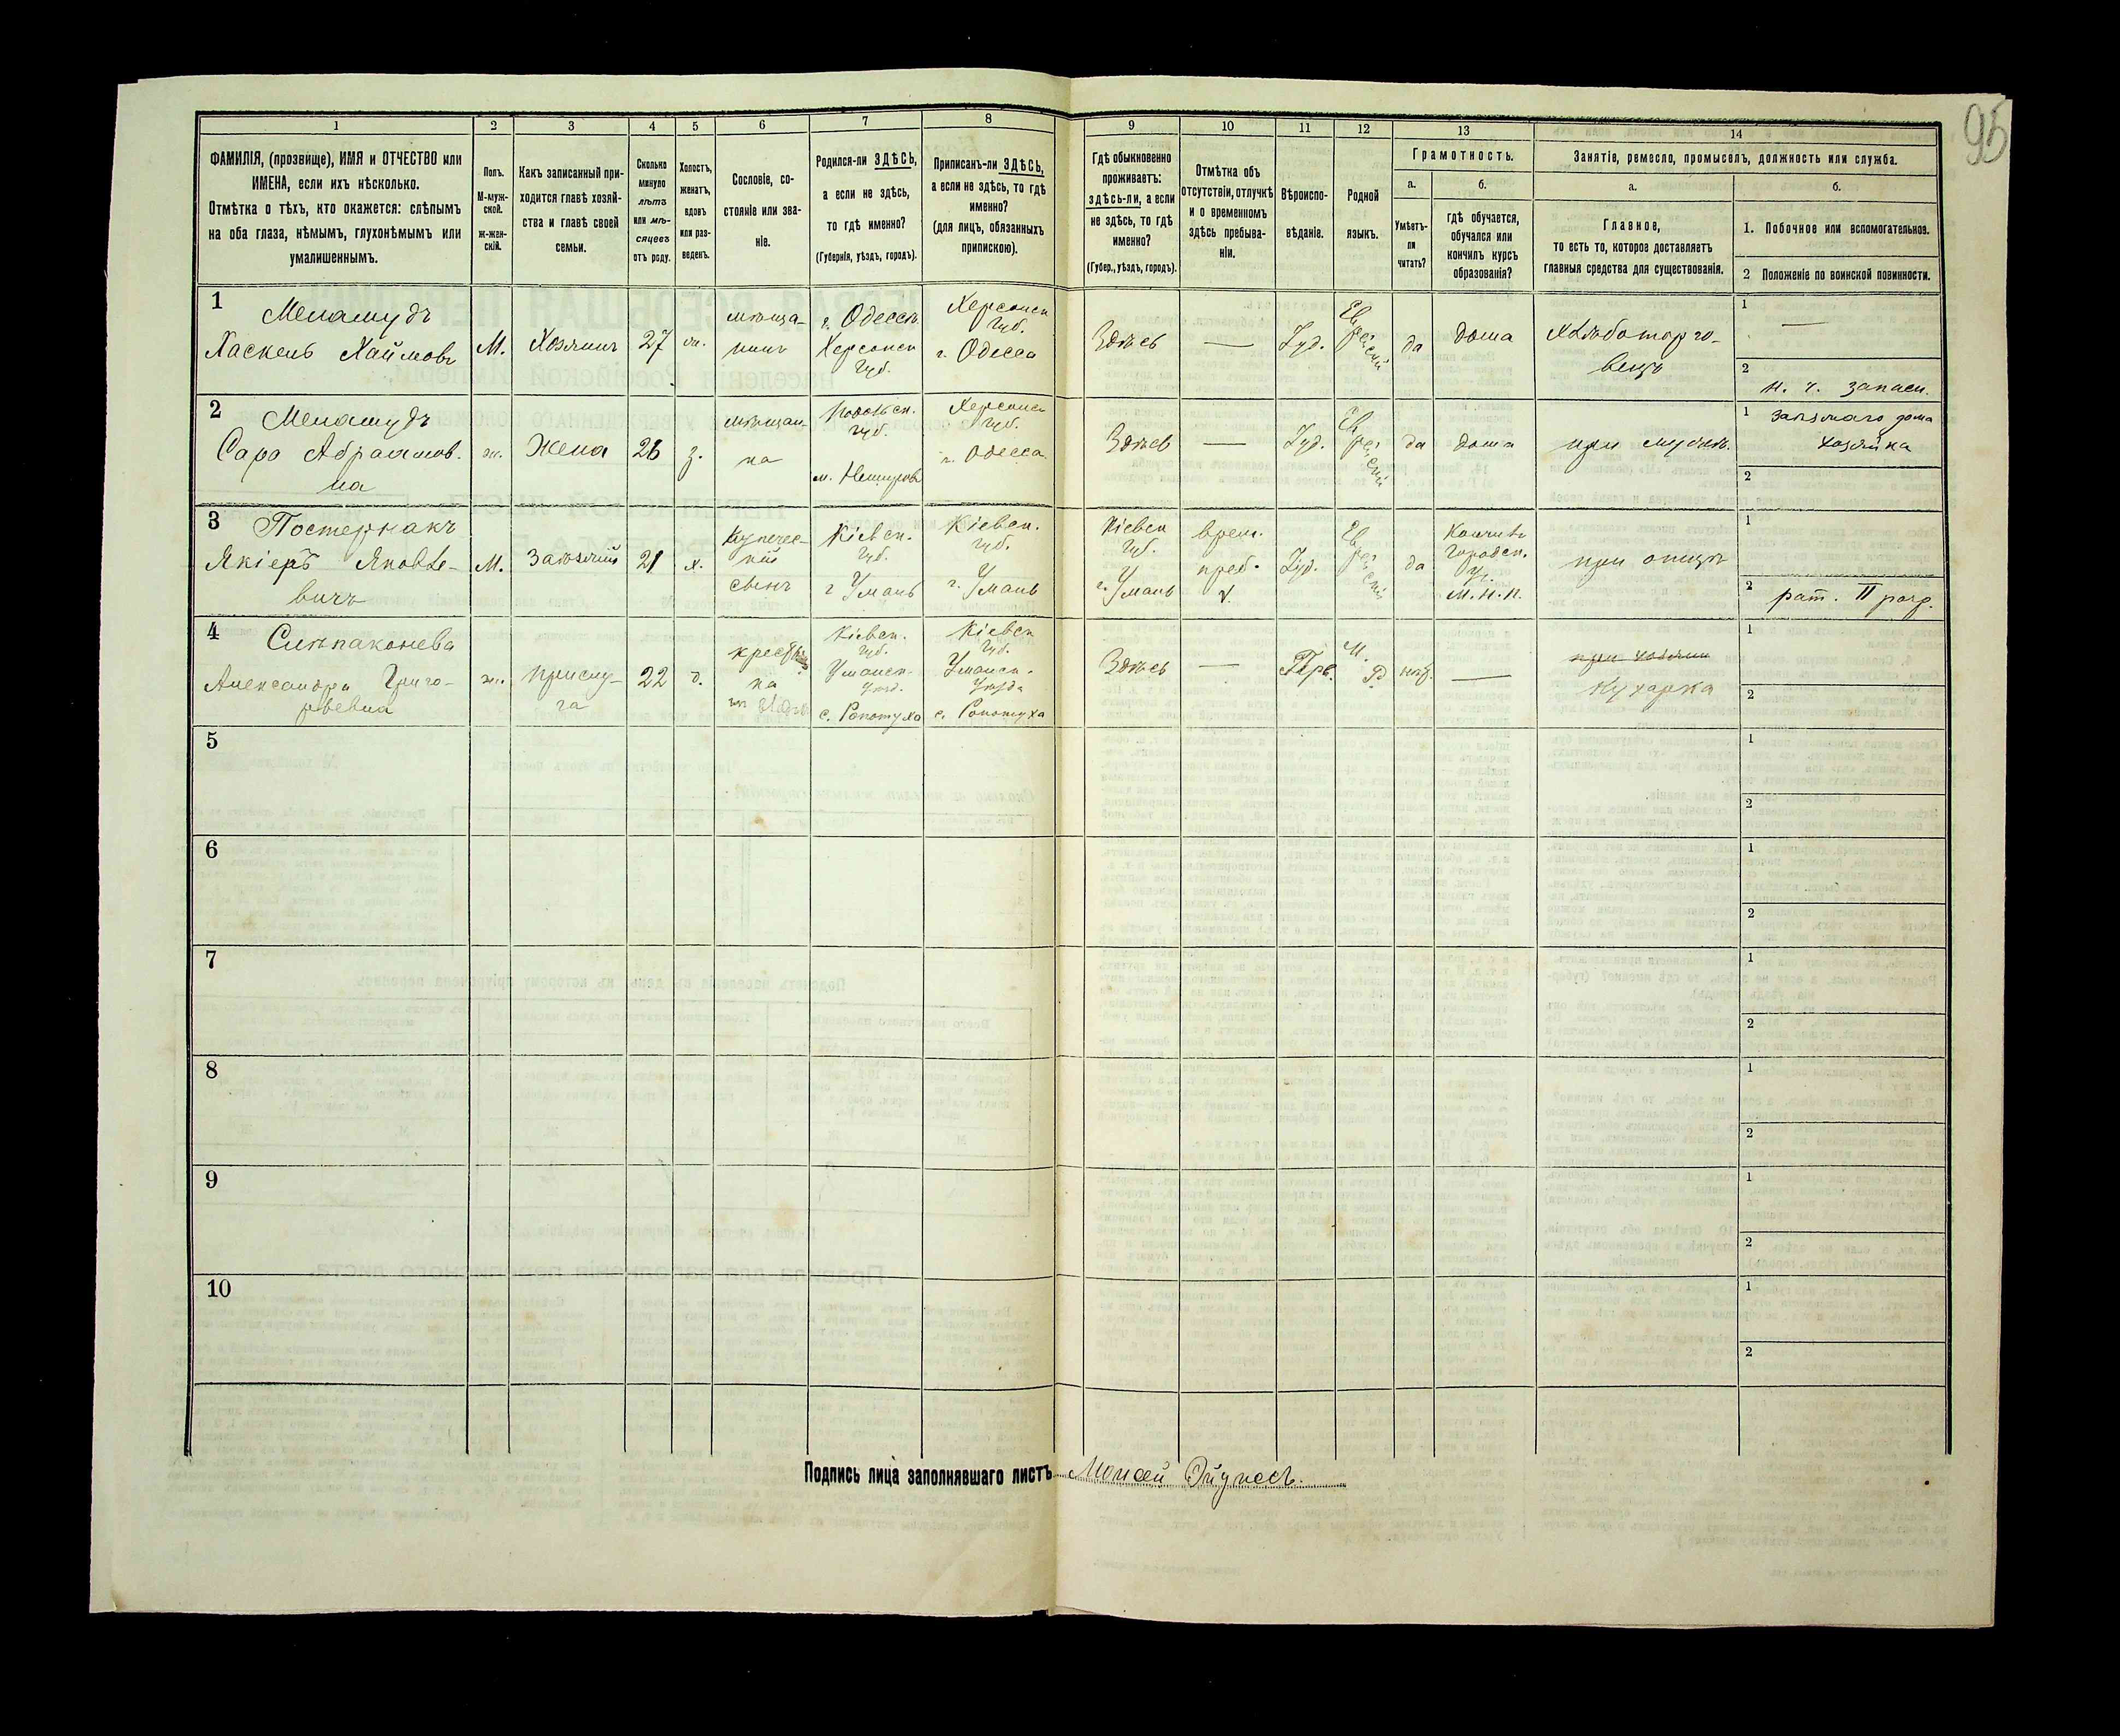 95
1 2 3 4 5 6 7 8 9 10 11 12 13 14
ФАМИЛІЯ, (прозвище), ИМЯ и ОТЧЕСТВО или
ИМЕНА, если ихъ нѣсколько.
Отмѣтка о тѣхъ, кто окажется: слѣпымъ
на оба глаза, нѣмымъ, глухонѣмымъ или
умалишеннымъ.
Полъ.
М-муж-
ской.
ж-жен-
скій.
Какъ записанный при-
ходится главѣ хозяй-
ства и главѣ своей
семьи.
Сколько
минуло
лѣтъ
или мѣ-
сяцевъ
отъ роду.
Холостъ,
женатъ,
вдовъ
или раз-
веденъ.
Сословіе, со-
стояніе или зва-
ніе.
Родился-ли ЗДѢСЬ,
а если не здѣсь,
то гдѣ именно?
(Губернія, уѣздъ, городъ).
Приписанъ-ли ЗДѢСЬ,
а если не здѣсь, то гдѣ
именно?
(для лицъ, обязанныхъ
припискою).
Гдѣ обыкновенно
проживаетъ:
здѣсь-ли, а если
не здѣсь, то гдѣ
именно?
(Губер., уѣздъ, городъ).
Отмѣтка объ
отсутствіи, отлучкѣ
и о временномъ
здѣсь пребыва-
ніи.
Вѣроиспо-
вѣданіе.
Родной
языкъ.
Грамотность.
а.
Умѣетъ-
ли
читать?
б.
гдѣ обучается,
обучался или
кончилъ курсъ
образованія?
Занятіе, ремесло, промыселъ, должность или служба.
а.
Главное,
то есть то, которое доставляетъ
главныя средства для существованія.
б.
1. Побочное или вспомогательное.
2 Положеніе по воинской повинности.
1
Менашудъ
Хаскель Хаймовъ
М.
Хозяинъ
27
мѣща-
нинъ
г. Одесса
Херсонск
губ.
Херсонск
губ.
г. Одесса
Здѣсь
—
Іуд.
Еврейский
да
дома
Хлѣботорго-
вецъ
1
—
2
н. ч. запасн.
2
Менашудъ
Сара Абрамов.
на
ж.
Жена
26
з.
мѣщан-
ка
Подольск.
губ.
м. Немировъ
Херсонск
губ.
г. Одесса
Здѣсь
—
Іуд.
Еврейский
да
дома
при мужѣ.
1
дома
хозяйка
2
3
Постернакъ
Якіеръ Яковле-
вичъ
М.
21
х.
Купечес-
кій
сынъ
Кіевск.
губ.
г Умань
Кіевск.
губ.
г. Умань
Кіевск
губ.
г. Умань
врем.
преб.
Іуд.
Еврейский
да
Кончилъ
городск.
уч.
М. Н. П.
при отцѣ
1
2
рат. II разр.
4
Слѣпаконева
Александра Григо-
рьевна
ж.
прислу-
га
22
д.
крестьян
ка
Кіевск.
губ.
Уманск.
уѣзд.
с. Ропотуха
Кіевск
губ.
Уманск.
уѣзда
с. Ропотуха
Здѣсь
—
—
при хозяин
Кухарка
1
2
5
1
2
6
1
2
7
1
2
8
1
2
9
1
2
10
1
2
Подпись лица заполнявшаго листъ Моисей Эйдносъ.